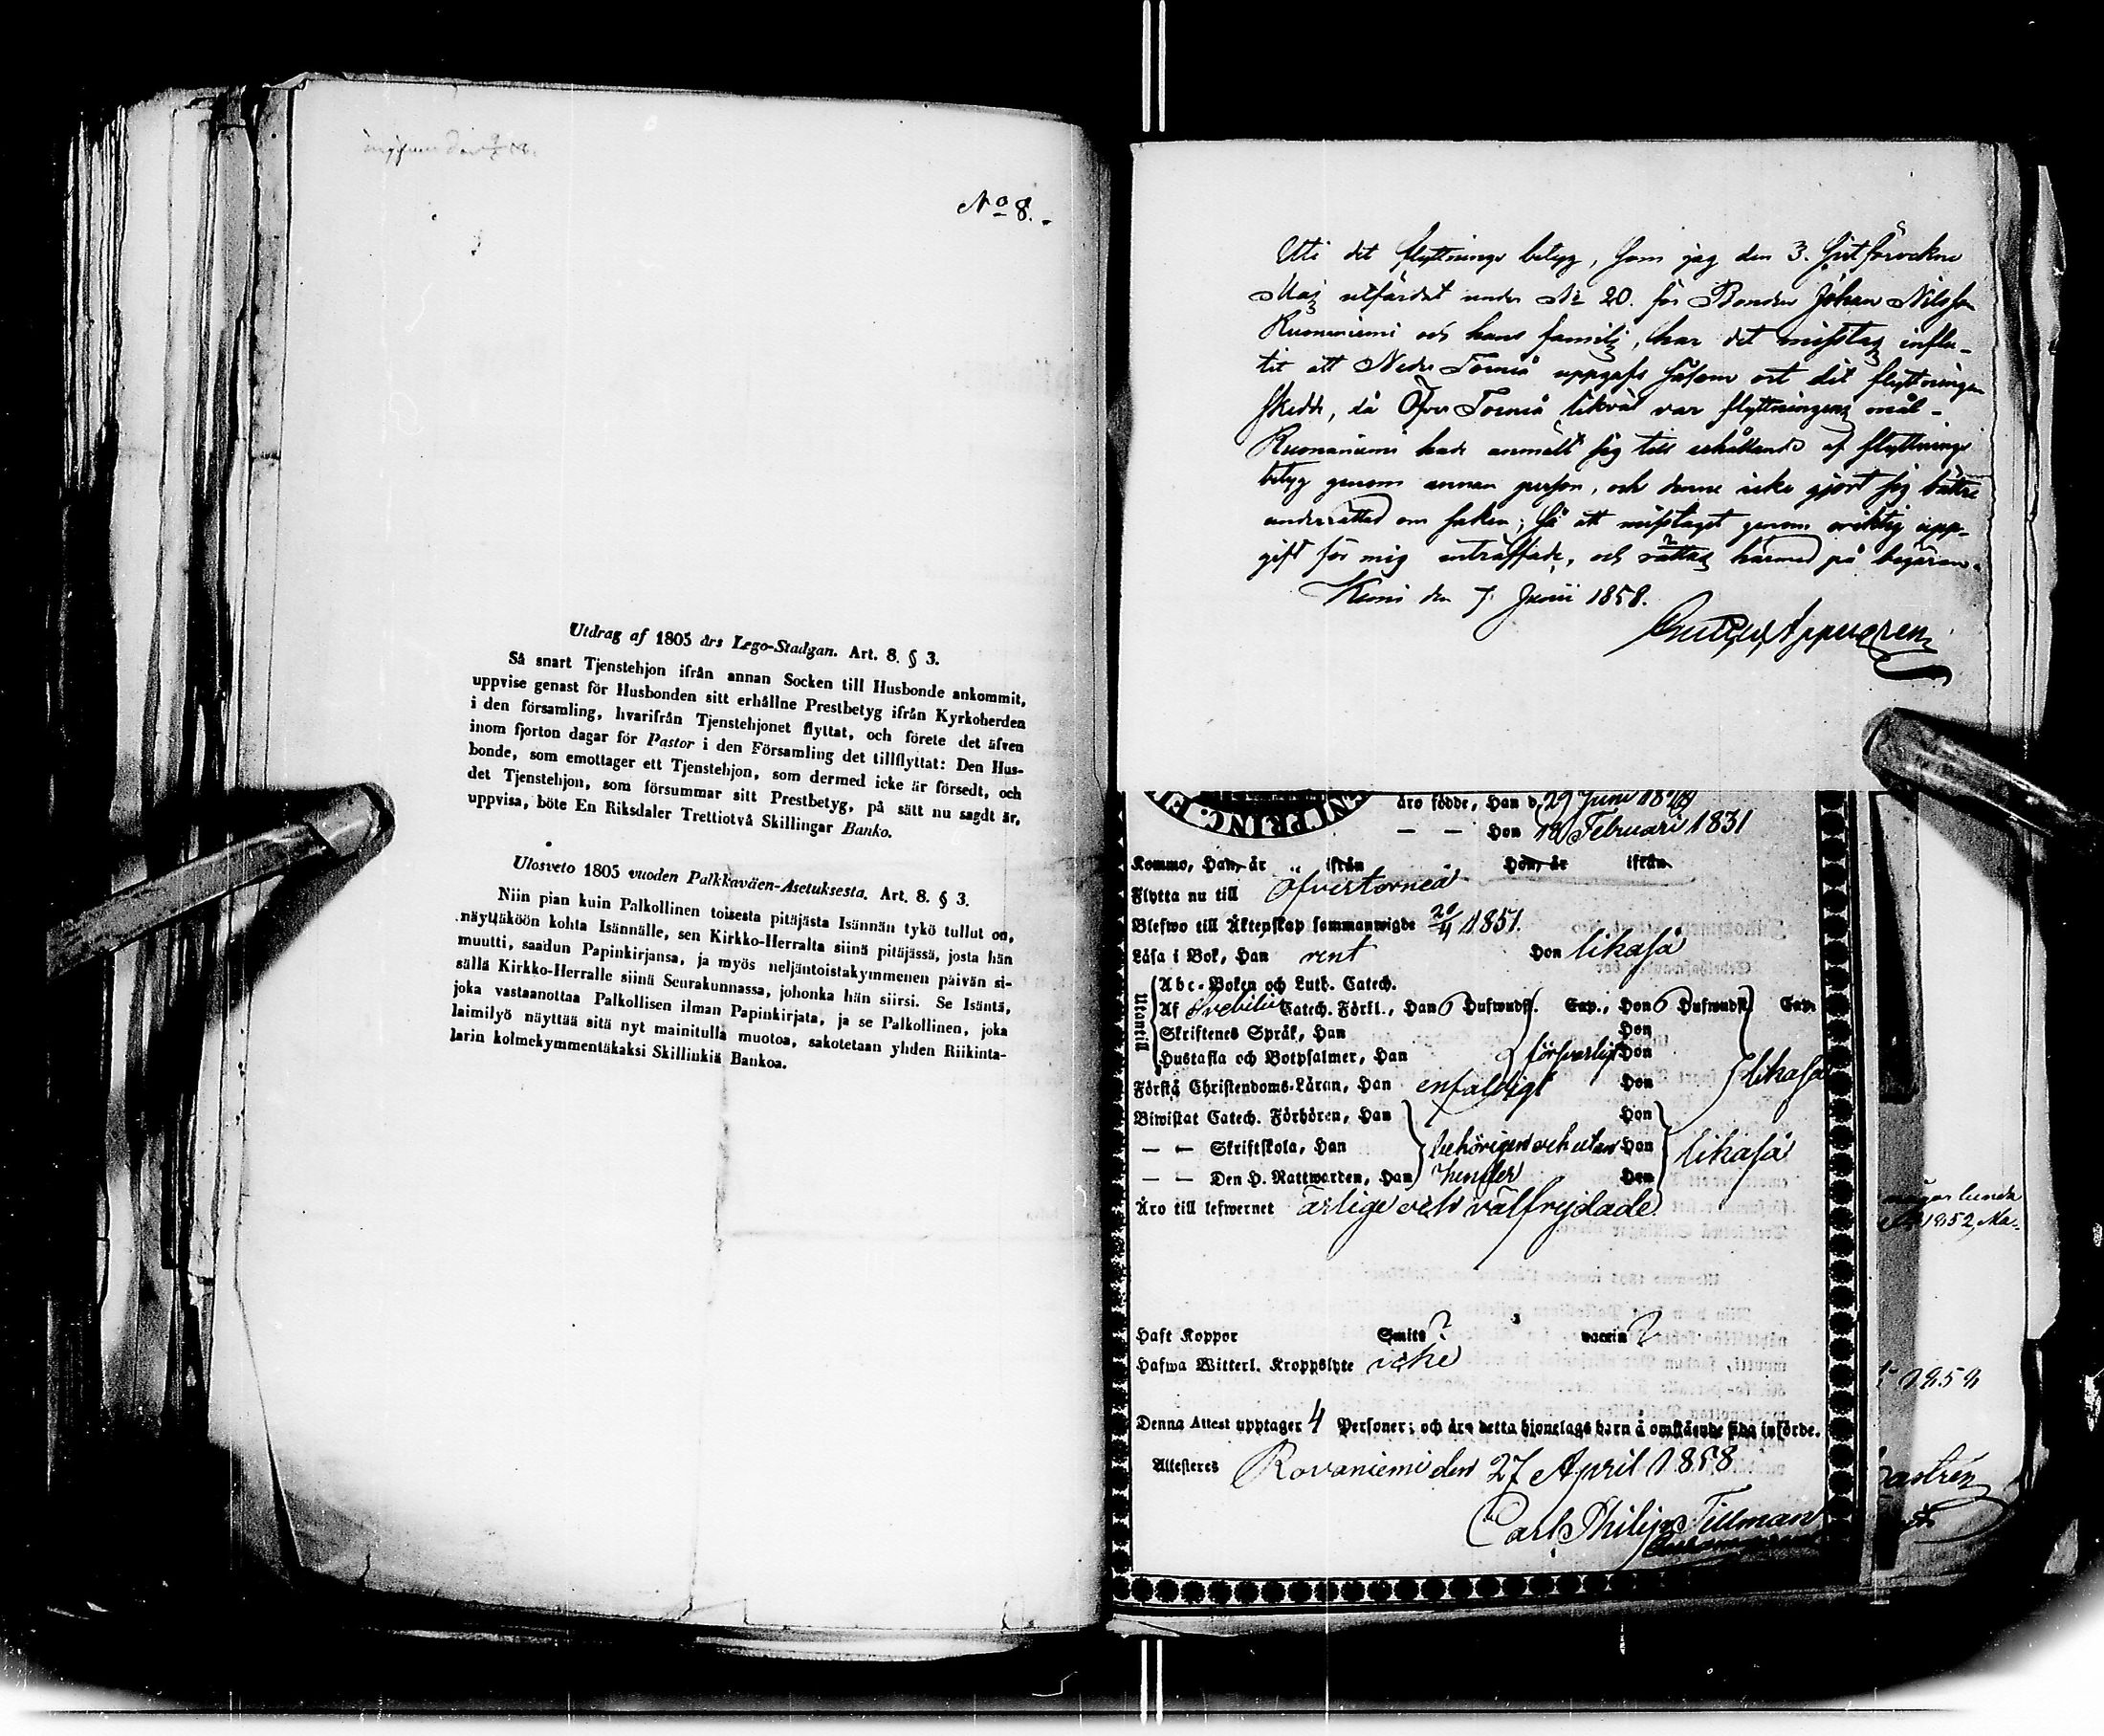 No 8.
Utdrag af 1805 års Lego-Stadgan. Art. 8. § 3.
Så snart Tjenstehjon ifrån annan Socken till Husbonde ankommit,
uppvise genast för Husbonden sitt erhållne Prestbetyg ifrån Kyrkoherden
i den församling, hvarifrån Tjenstehjonet flyttat, och förete det äfven
inom fjorton dagar för Pastor i den Församling det tillflyttat: Den Hus-
bonde, som emottager ett Tjenstehjon, som dermed icke är försedt, och
det Tjenstehjon, som försummar sitt Prestbetyg, på sätt nu sagdt är,
uppvisa, böte En Riksdaler Trettiotvå Skillingar Banko.
Ulosveto 1805 vuoden Palkkaväen-Asetuksesta. Art. 8. § 3.
Niin pian kuin Palkollinen toisesta pitäjästä Isännän tykö tullut on,
näyttäköön kohta Isännälle, sen Kirkko-Herralta siinä pitäjässä, josta hän
muutti, saadun Papinkirjansa, ja myös neljäntoistakymmenen päivän si-
sällä Kirkko-Herralle siinä Seurakunnassa, johonka hän siirsi. Se Isäntä,
joka vastaanottaa Palkollisen ilman Papinkirjata, ja se Palkollinen, joka
laimilyö näyttää sitä nyt mainitulla muotoa, sakotetaan yhden Riikinta-
larin kolmekymmentäkaksi Skillinkiä Bankoa.
Uti det flyttnings betyg, som jag den 3. sistförvekne
Maj utfärdat under No 20. för Bonden Johan Nilsson
Ruonaniemi och hans familj, har det misstag influ-
tit att Neder Torneå uppgafs såsom ort dit flyttningen
skedde, då Öfver Torneå likväl var flyttningens mål -
Ruonaniemi hade anmält sig till erhållande af flyttnings
betyg genom annan person, och denne icke gjort sig bättre
underrättad om saken; så att misstaget genom oriktig upp-
gift för mig inträffade, och rättas härmed på begäran.
Kemi den 7. Junii 1858.
äro födde, Han d. 29 Juni
— — Hon 18 Februari 1831
Kommo, Han, är ifrån Hon, är ifrån
Flytta nu till Öfvertorneå
Blefwo till Äktenskap sammanwigde 20/4 1851.
Läsa i Bok, Han rent Hon likaså
Utantill
Abc-Boken och Luth. Catech.
Af Svebilii Catech. Förkl., Han 6 Hufwudst. Cap., Hon 6 Hufwudst. Cap.
Skriftenes Språk, Han Hon
Hustafla och Botpsalmer, Han försvarligt Hon
Förstå Christendoms-Läran, Han enfaldigt Hon likaså
Biwistat Catech. Förhören, Han Hon
— — Skriftskola, Han behörigen och utan Hon likaså
— — Den H. Nattwarden, Han hinder Hon
Äro till lefwernet ärlige och välfrejdade
Haft Koppor Smitt? vaccin?
Hafwa Witterl. Kroppslyte icke
Denna Attest upptager 4 Personer; och äro detta hjonelags barn å omstående sida införde.
Attesteres Rovaniemi den 27 April 1858
Carl Philip Tillman
1852, Ma-
1858